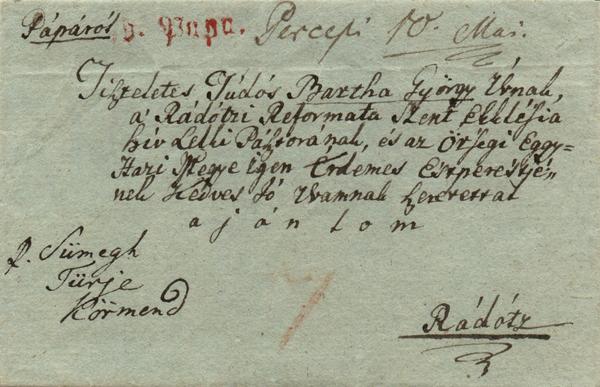 Pápárós v. Papa. Percepi 10. Mai.
Tiszteletes Túdós Bartha György Úrnak,
a' Rádótzi Reformata Szent Ekklésia
hív Lelki Pásztorának, és az Örségi Eggy=
Házi Megye igen Érdemes Esperestjé=
nek Kedves Jó Uramnak szeretettel
ajánlom
p. Sümegh
Türje
Körmend
7
Rádótz